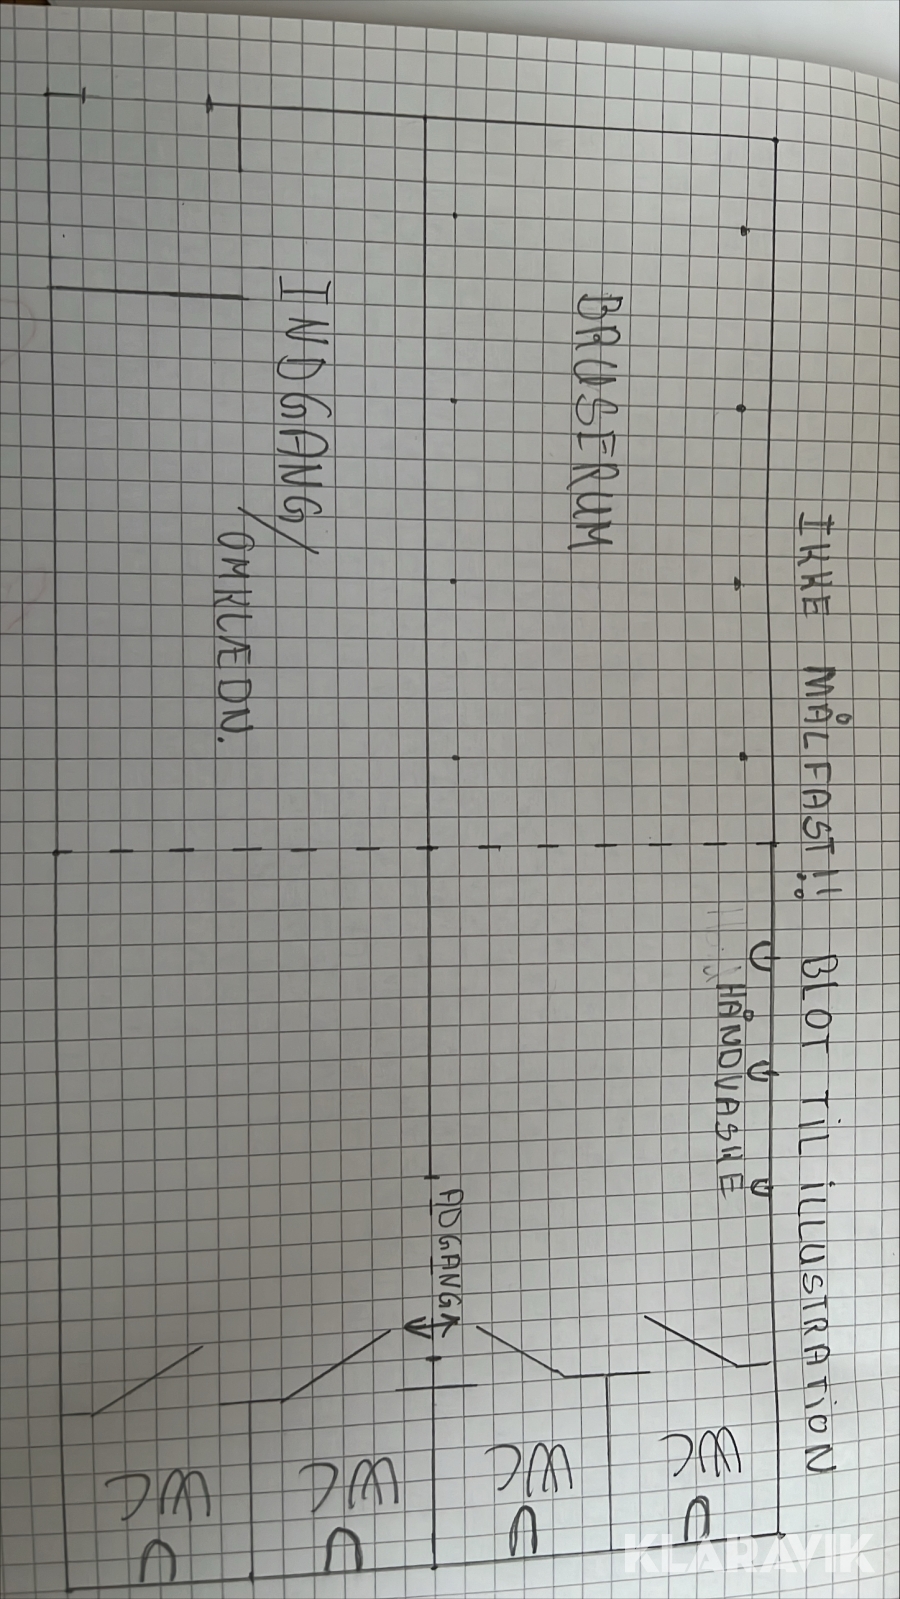 IKKE MÅLFAST!! BLOT TIL ILLUSTRATION
BRUSERUM
HÅNDVASKE
ADGANG
INDGANG/
/OMKLÆDN.
WC
WC
WC
WC
KLARAVIK